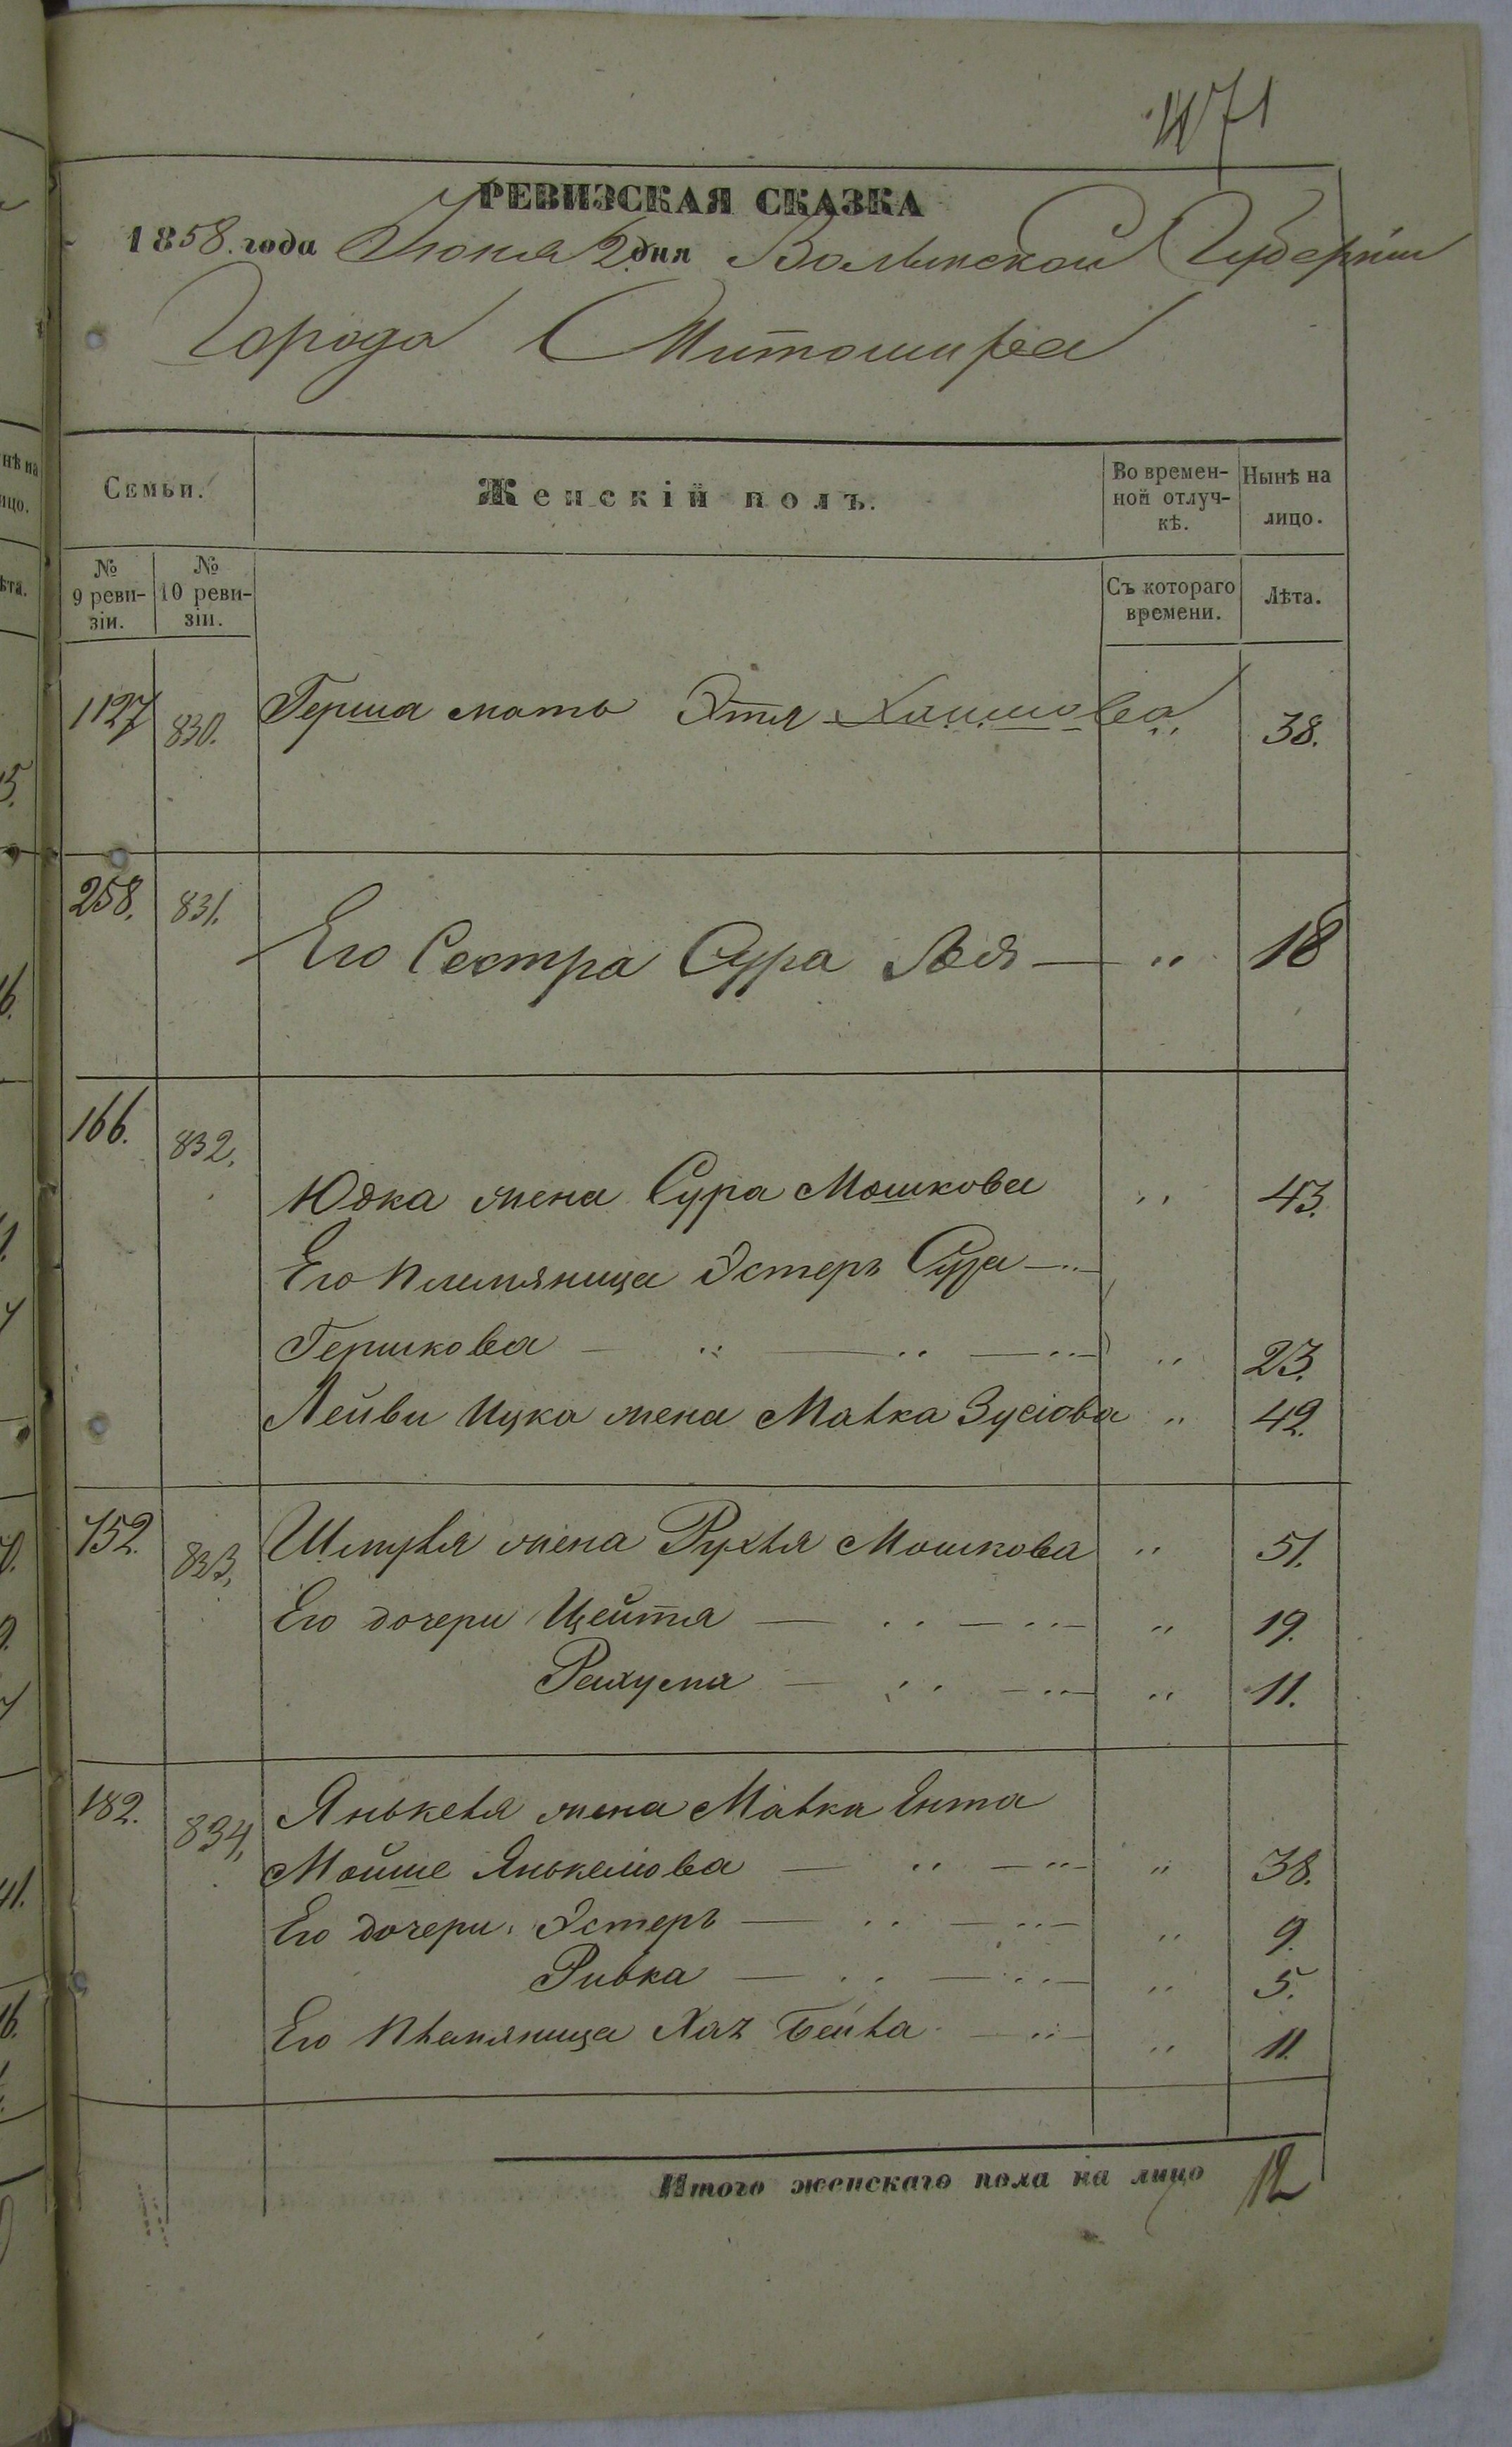 471
РЕВИЗСКАЯ СКАЗКА
1858. года Июня 2 дня Волынской Губерніи
Города Житомира
Семьи. Женскій полъ. Во времен- Нынѣ на
ной отлуч- лицо.
кѣ.
№ № Съ котораго Лѣта.
9 реви- 10 реви- времени.
зіи. зіи.
1127 830. Герша мать Этля Хаимова „ 38.
258. 831. Его Сестра Сура Лея — „ 18
166. 832.
Юдка жена Сура Мошкова „ 43.
Его племяница Эстеръ Сура — „ —
Гершкова — „ — „ — „ — „ 23.
Лейви Ицка жена Малка Зусіова „ 42.
752. 833. Шмуля жена Рухля Мошкова „ 51.
Его дочери Цейтля — „ — „ — „ 19.
Рахума — „ — „ — „ 11.
182. 834. Янькеля жена Малка Ента
Мойше Янькеліова — „ — „ — „ 38.
Его дочери: Эстеръ — „ — „ — „ 9.
Ривка — „ — „ — „ 5.
Его племяница Хая Бейла — „ — „ 11.
Итого женскаго пола на лицо 12